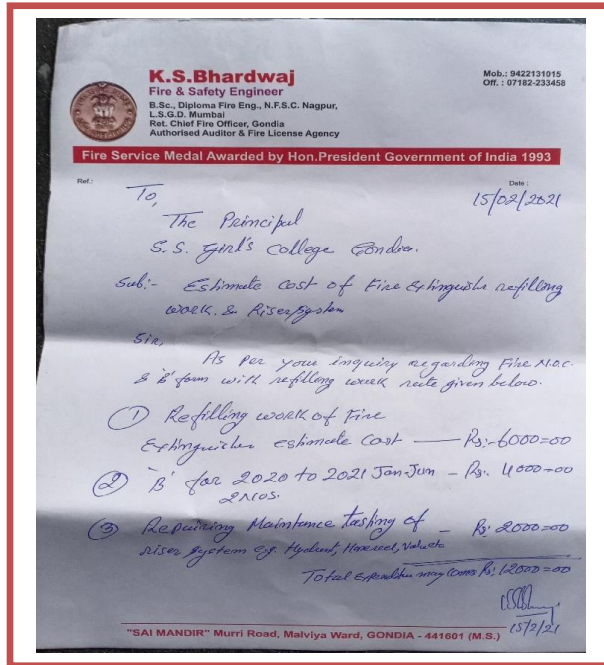 K.S.Bhardwaj
Fire & Safety Engineer
B.Sc., Diploma Fire Eng., N.F.S.C. Nagpur,
L.S.G.D. Mumbai
Ret. Chief Fire Officer, Gondia
Authorised Auditor & Fire License Agency
Mob.: 9422131015
Off. : 07182-233458
Fire Service Medal Awarded by Hon.President Government of India 1993
Ref.:
Date :
15/02/2021
To,
The Principal
S.S. Girl's College Gondia.
Sub:- Estimate cost of Fire Extinguisher refilling
work. & Riser system
Sir,
As Per your inquiry regarding Fire N.O.C.
& 'B' form with refilling work rate given below.
① Refilling work of Fire
Extinguisher estimate cost — Rs:-6000=00
② 'B' for 2020 to 2021 Jan-Jun - Rs:. 4000=00
2Nos.
③ Repairing Maintance tasting of - Rs: 2000=00
riser system e.g. Hydrant, Hosereel,
Total may Rs: 12000=00
15/2/21
"SAI MANDIR" Murri Road, Malviya Ward, GONDIA - 441601 (M.S.)